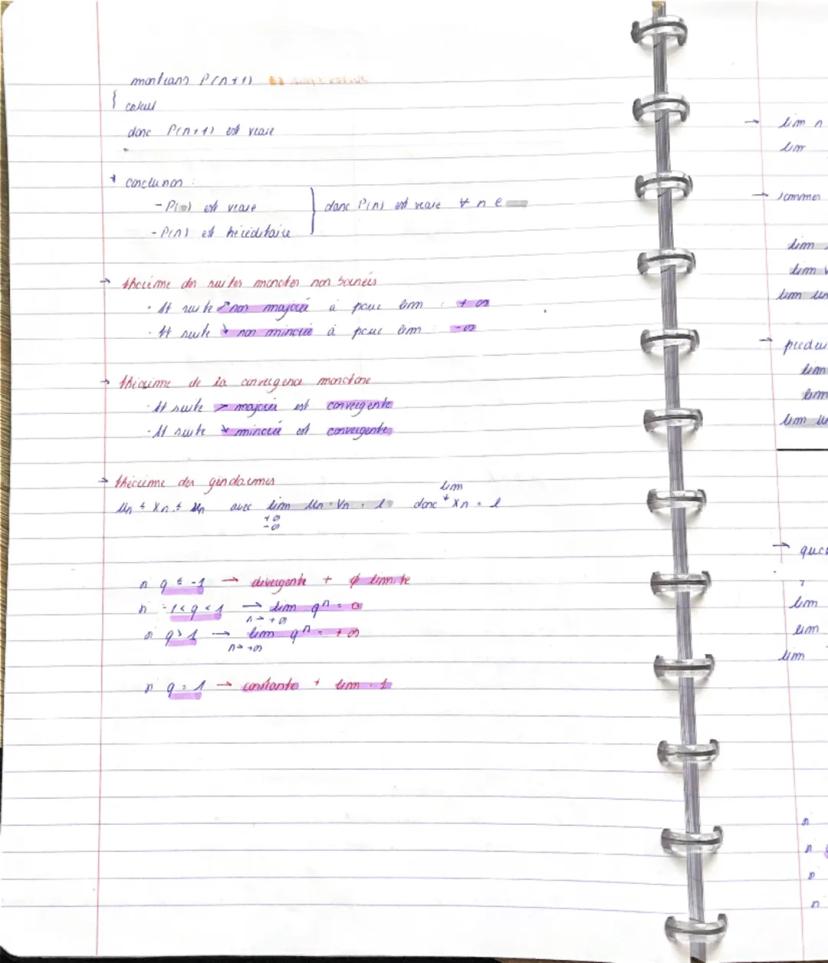 montrons P(n+1)
calcul
donc P(n+1) est vraie
* conclusion :
- P( ) est vraie
- P(n) est héréditaire
donc P(n) est vraie ∀ n ∈
→ théorème des suites monotones non bornées
• tt suite ↗ non majorée à pour lim : +∞
• tt suite ↘ non minorée à pour lim : -∞
→ théorème de la convergence monotone
• tt suite ↗ majorée est convergente
• tt suite ↘ minorée est convergente
→ théorème des gendarmes
Un ≤ Xn ≤ Vn avec lim Un = Vn = l donc lim Xn = l
+∞
-∞
si q ≤ -1 → divergente + ∅ limite
si -1 < q < 1 → lim qⁿ = 0
n→+∞
si q > 1 → lim qⁿ = +∞
n→+∞
si q = 1 → constante + lim = 1
→ lim n
lim
→ somme
lim
lim
lim Un
→ produi
lim
lim
lim Un
→ quo
lim
lim
lim